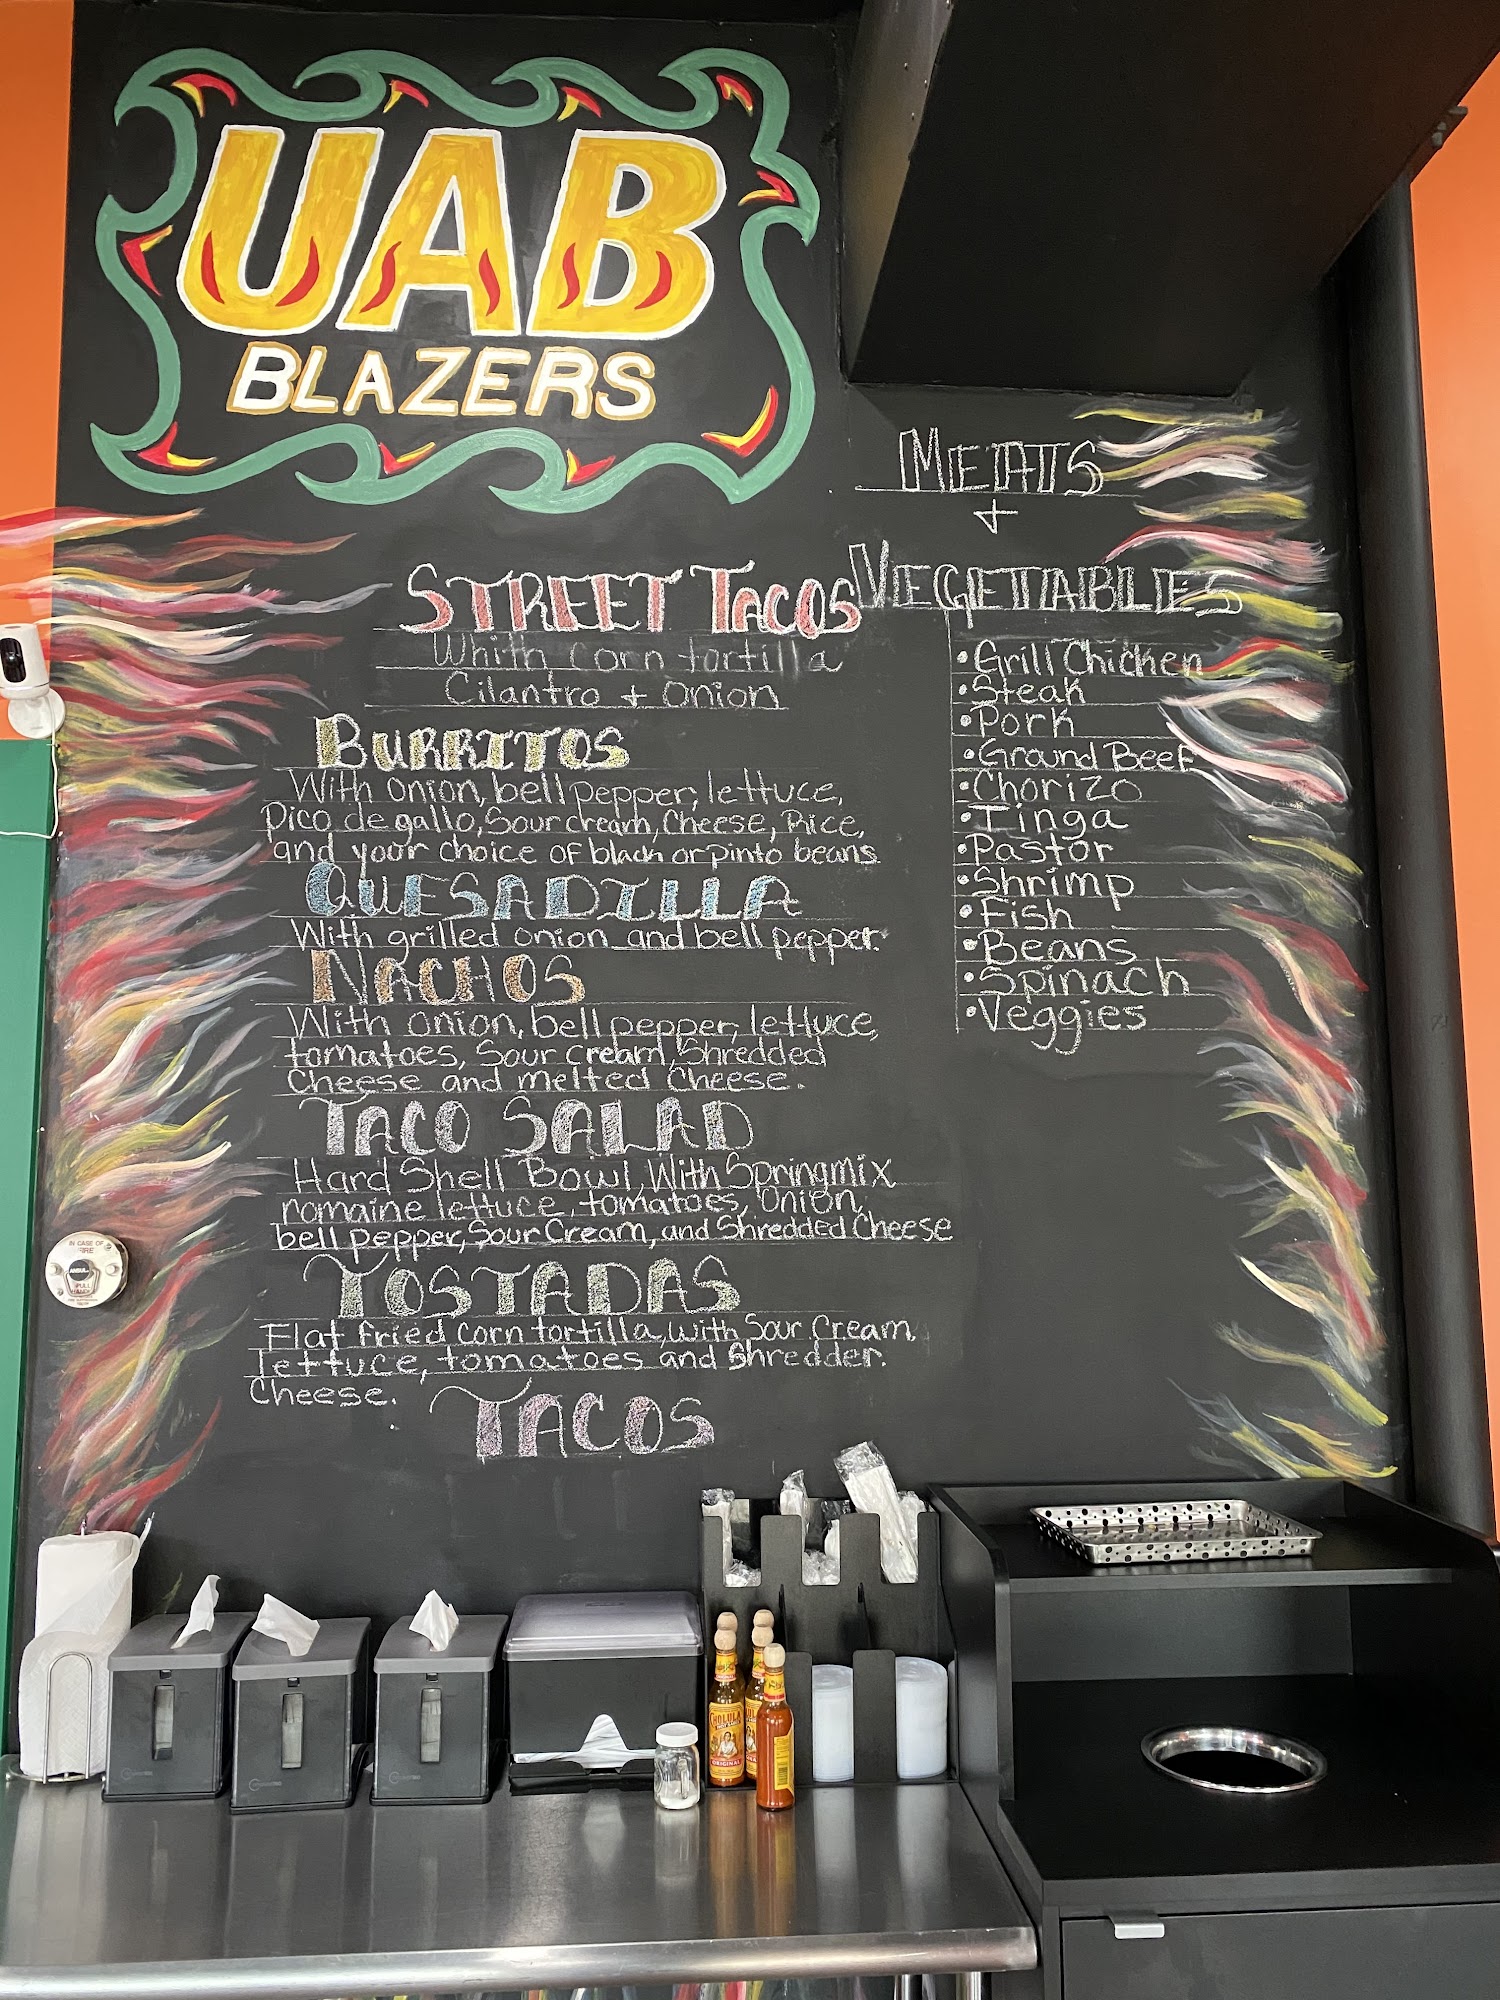 UAB
BLAZERS
STREET TACOS
Whith corn tortilla
Cilantro + onion
BURRITOS
With onion, bell pepper, lettuce,
Pico de gallo, Sour cream, Cheese, Rice,
and your choice of black or pinto beans
QUESADILLA
With grilled onion and bell pepper.
NACHOS
With onion, bell pepper, lettuce,
tomatoes, Sour cream, Shredded
Cheese and melted Cheese.
TACO SALAD
Hard Shell Bowl, With Springmix
romaine lettuce, tomatoes, Onion,
bell pepper, Sour Cream, and Shredded Cheese
TOSTADAS
Flat fried corn tortilla, with Sour Cream,
lettuce, tomatoes and Shredder.
Cheese.
TACOS
MEATS
+
VEGETABLES
• Grill Chicken
• Steak
• Pork
• Ground Beef
• Chorizo
• Tinga
• Pastor
• Shrimp
• Fish
• Beans
• Spinach
• Veggies
IN CASE OF
FIRE
ANSUL
PULL
HANDLE
CHOLULA
ORIGINAL